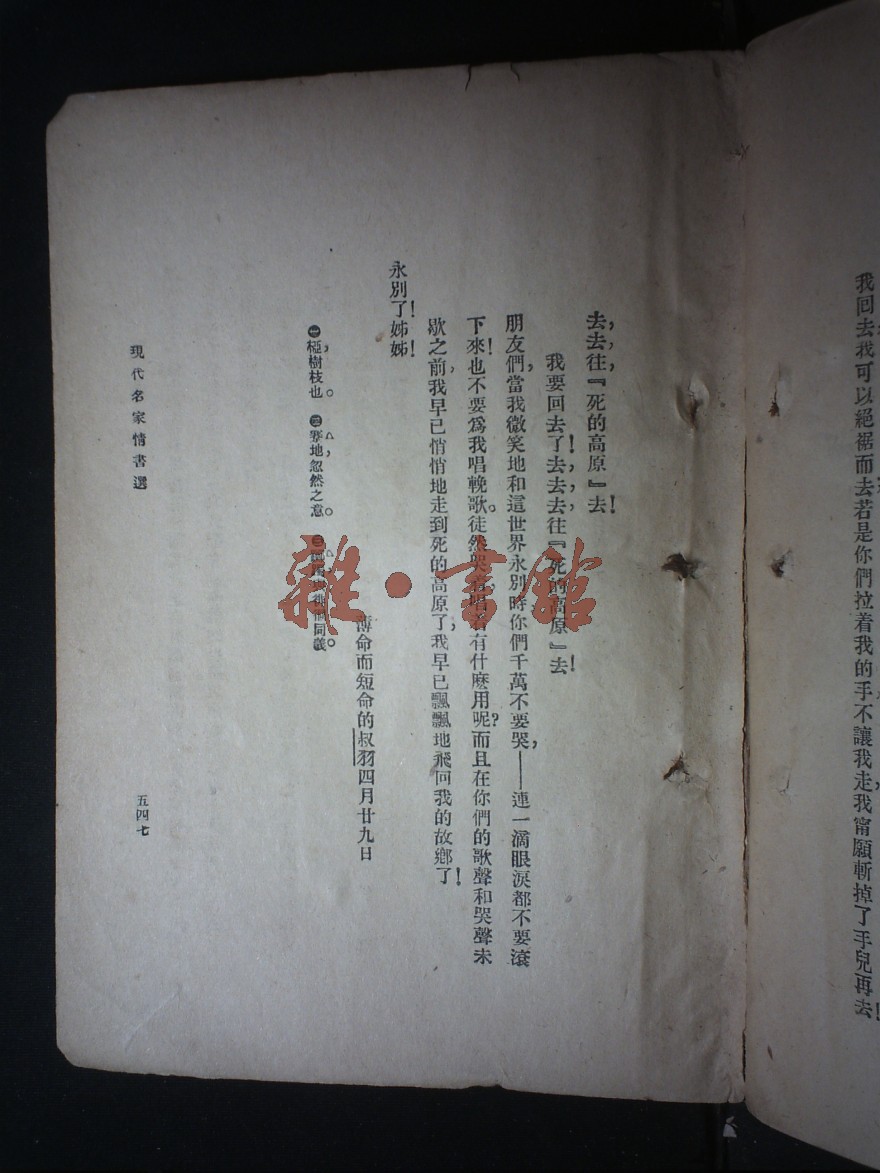 我回去我可以絕裾而去若是你們拉着我的手不讓我走，我甯願斬掉了手兒再去！
去，去，往，『死的高原』去！
我要回去了！去，去，去，往『死的高原』去！
朋友們，當我微笑地和這世界永別時你們千萬不要哭，——連一滴眼淚都不要滾
下來！也不要爲我唱輓歌。徒然哭着，唱着有什麽用呢？而且在你們的歌聲和哭聲未
歇之前，我早已悄悄地走到死的高原了，我早已飄飄地飛回我的故鄉了！
永別了！姊姊！
薄命而短命的叔羽四月廿九日
㊀椏，樹枝也。㊁霎地，忽然之意。㊂同義。
現代名家情書選
五四七
雜·書館